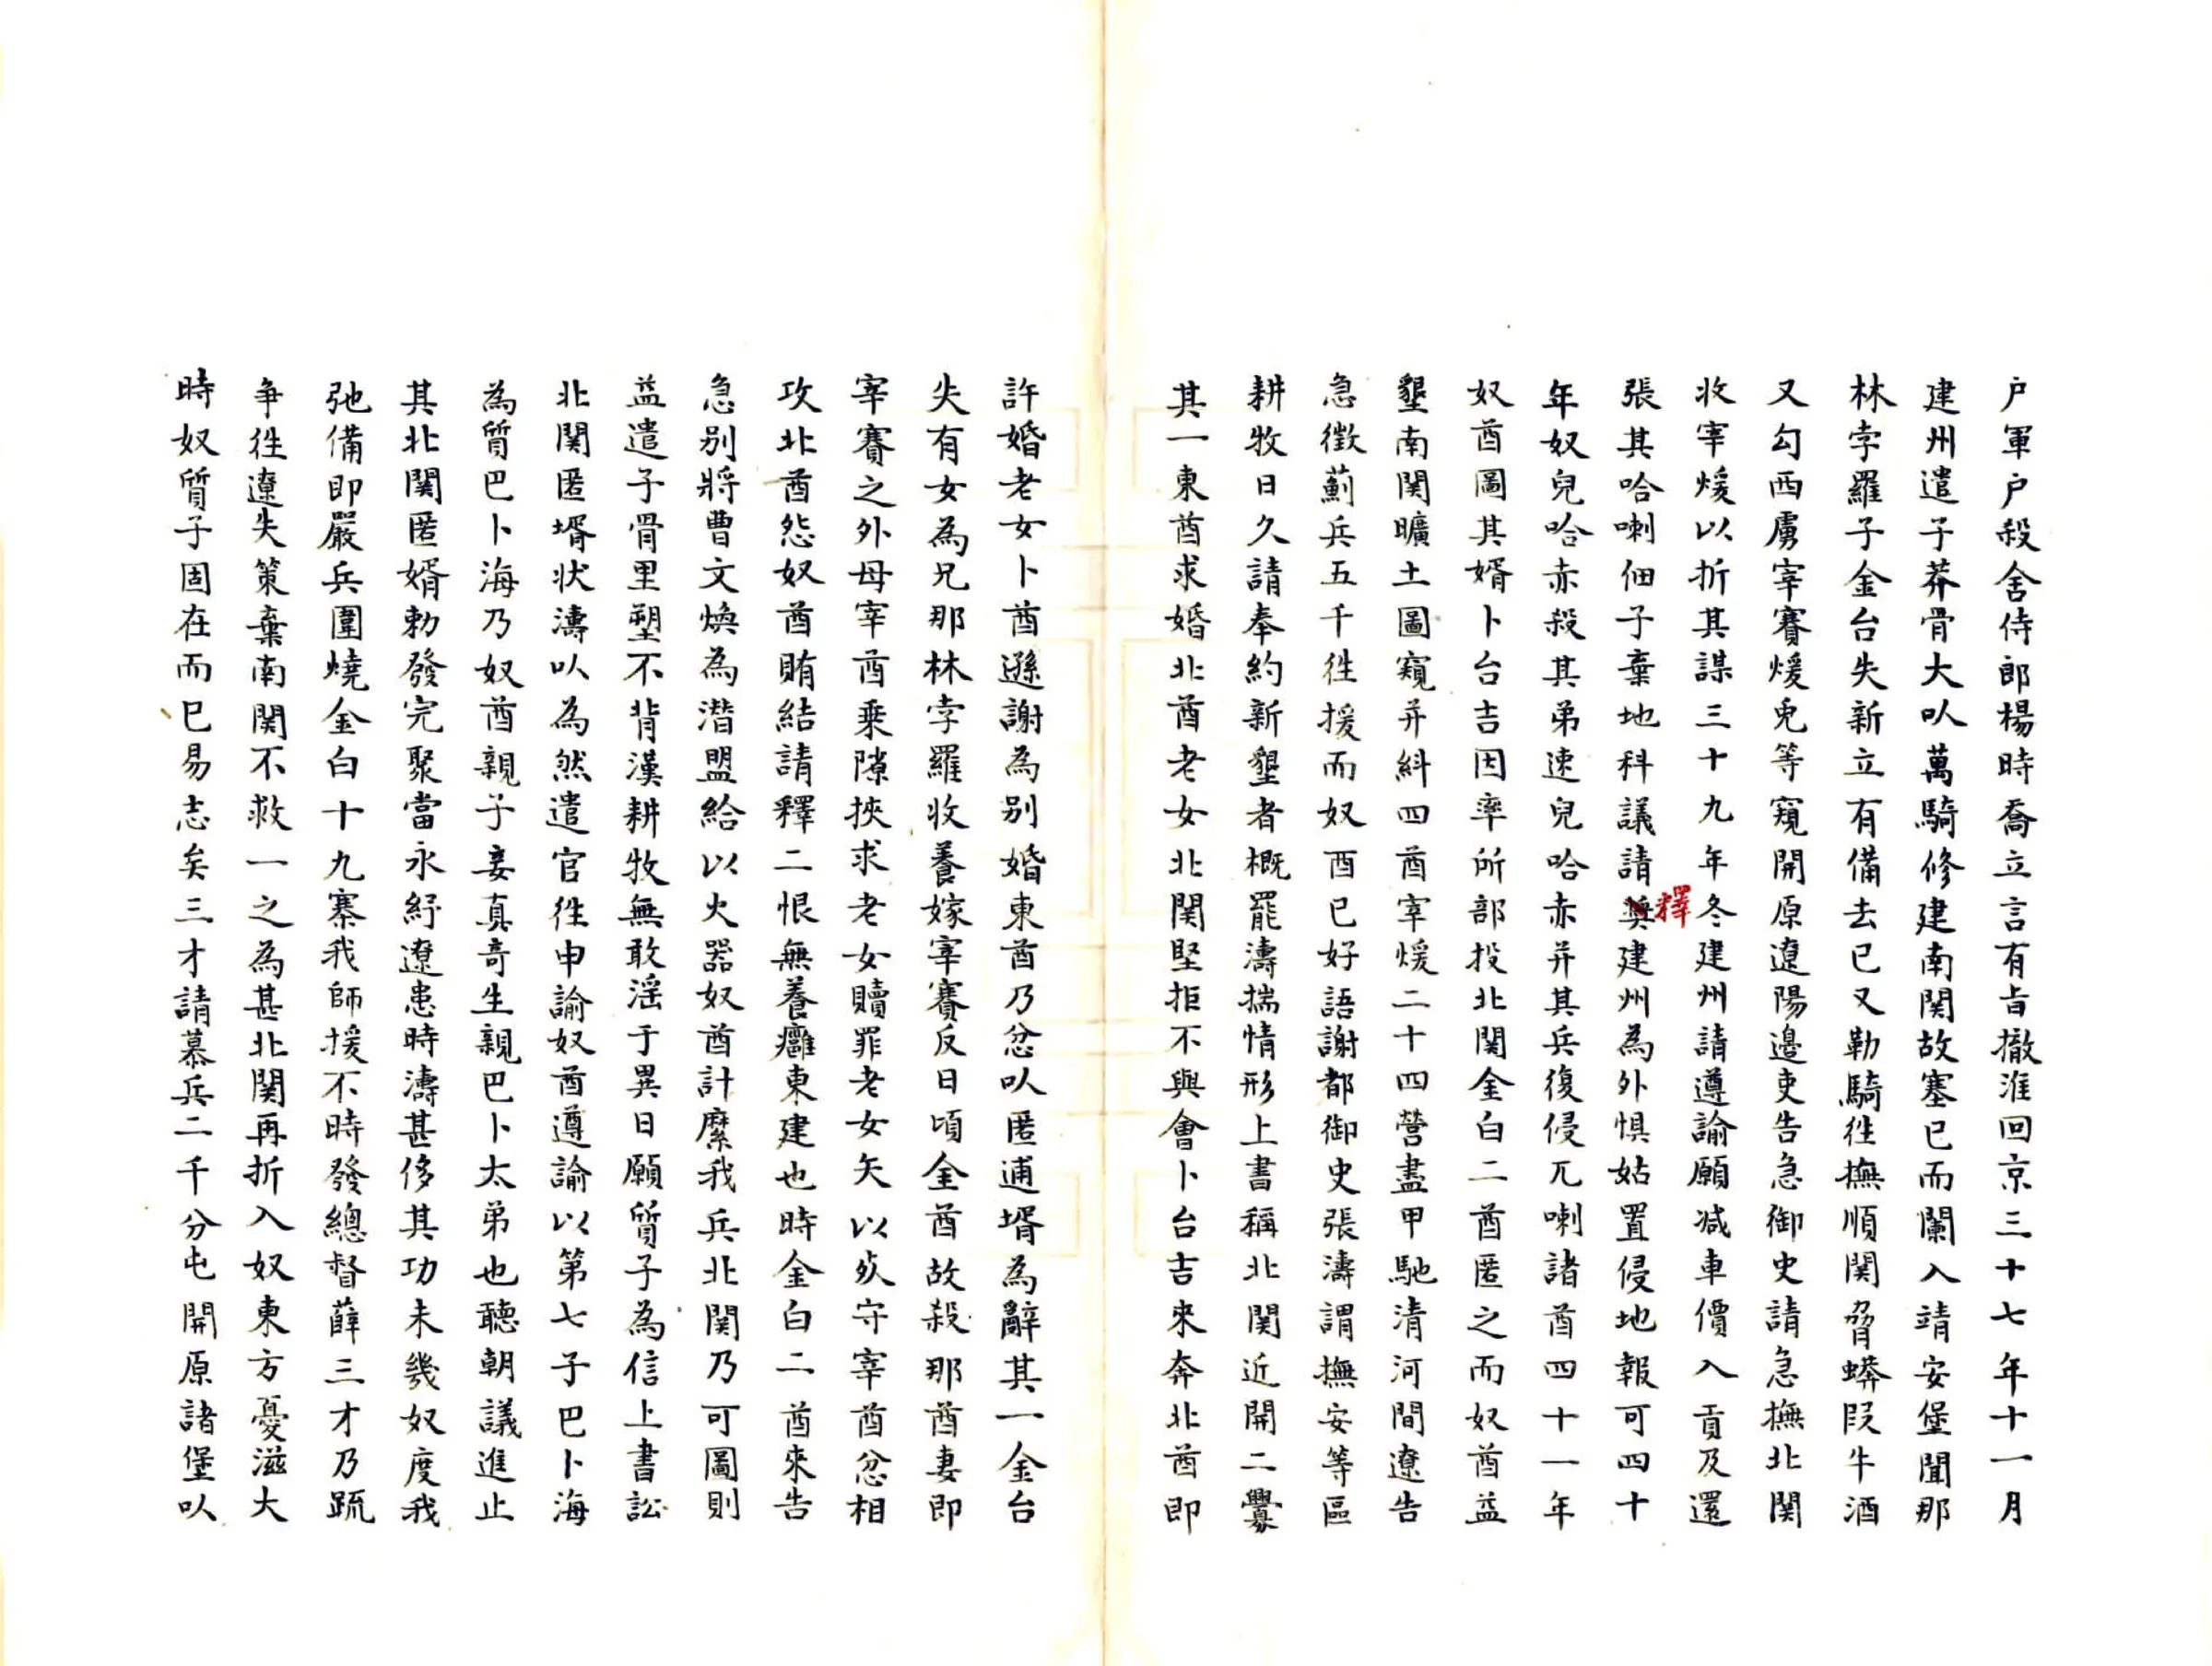 户軍户殺舍侍郎楊時喬立言有旨撤淮回京三十七年十一月
建州遣子莽骨大㕥萬騎修建南関故塞已而闌入靖安堡聞那
林孛羅子金台失新立有備去已又勒騎徃撫順関脅蟒段牛酒
又勾西虜宰賽煖兎等窺開原遼陽邊吏告急御史請急撫北関
收宰煖以折其謀三十九年冬建州請遵諭願减車價入貢及還
張其哈喇佃子棄地科議請奨釋建州為外惧姑置侵地報可四十
年奴兒哈赤殺其弟速兒哈赤并其兵復侵兀喇諸酋四十一年
奴酋圖其婿卜台吉因率所部投北関金白二酋匿之而奴酋益
墾南関曠土圖窺并糾四酋宰煖二十四營盡甲馳清河間遼告
急徵薊兵五千徃援而奴酉已好語謝都御史張濤謂撫安等區
耕牧日久請奉約新墾者概罷濤揣情形上書稱北関近開二釁
其一東酋求婚北酋老女北関堅拒不與會卜台吉來奔北酋即
許婚老女卜酋遜謝為别婚東酋乃忿㕥匿逋壻為辭其一金台
失有女為兄那林孛羅收養嫁宰賽反日頃金酋故殺那酋妻即
宰賽之外母宰酋乘隙挾求老女贖罪老女矢以死守宰酋忿相
攻北酋怨奴酋賄結請釋二恨無養癰東建也時金白二酋來告
急别將曹文煥為潜盟給以火器奴酋計縻我兵北関乃可圖則
益遣子骨里塑不背漢耕牧無敢滛于異日願質子為信上書訟
北関匿壻状濤㕥為然遣官徃申諭奴酋遵諭以第七子巴卜海
為質巴卜海乃奴酋親子妾真竒生親巴卜太弟也聽朝議進止
其北関匿婿勅發完聚當永紓遼患時濤甚侈其功未幾奴度我
弛備即嚴兵圍燒金白十九寨我師援不時發總督薛三才乃䟽
争徃遼失策棄南関不救一之為甚北関再折入奴東方憂滋大
時奴質子固在而巳易志矣三才請慕兵二千分屯開原諸堡㕥